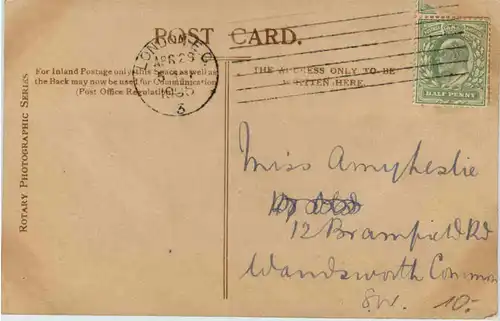 POST CARD.
LONDON. E.C.
For Inland Postage only this Space as well as
the Back may now be used for Communication
(Post Office Regulation).
THE ADDRESS ONLY TO BE
WRITTEN HERE.
HALF PENNY
ROTARY PHOTOGRAPHIC SERIES
Miss Amy Leslie
12 Bramfield Rd
Wandsworth Common
S.W. 10.-